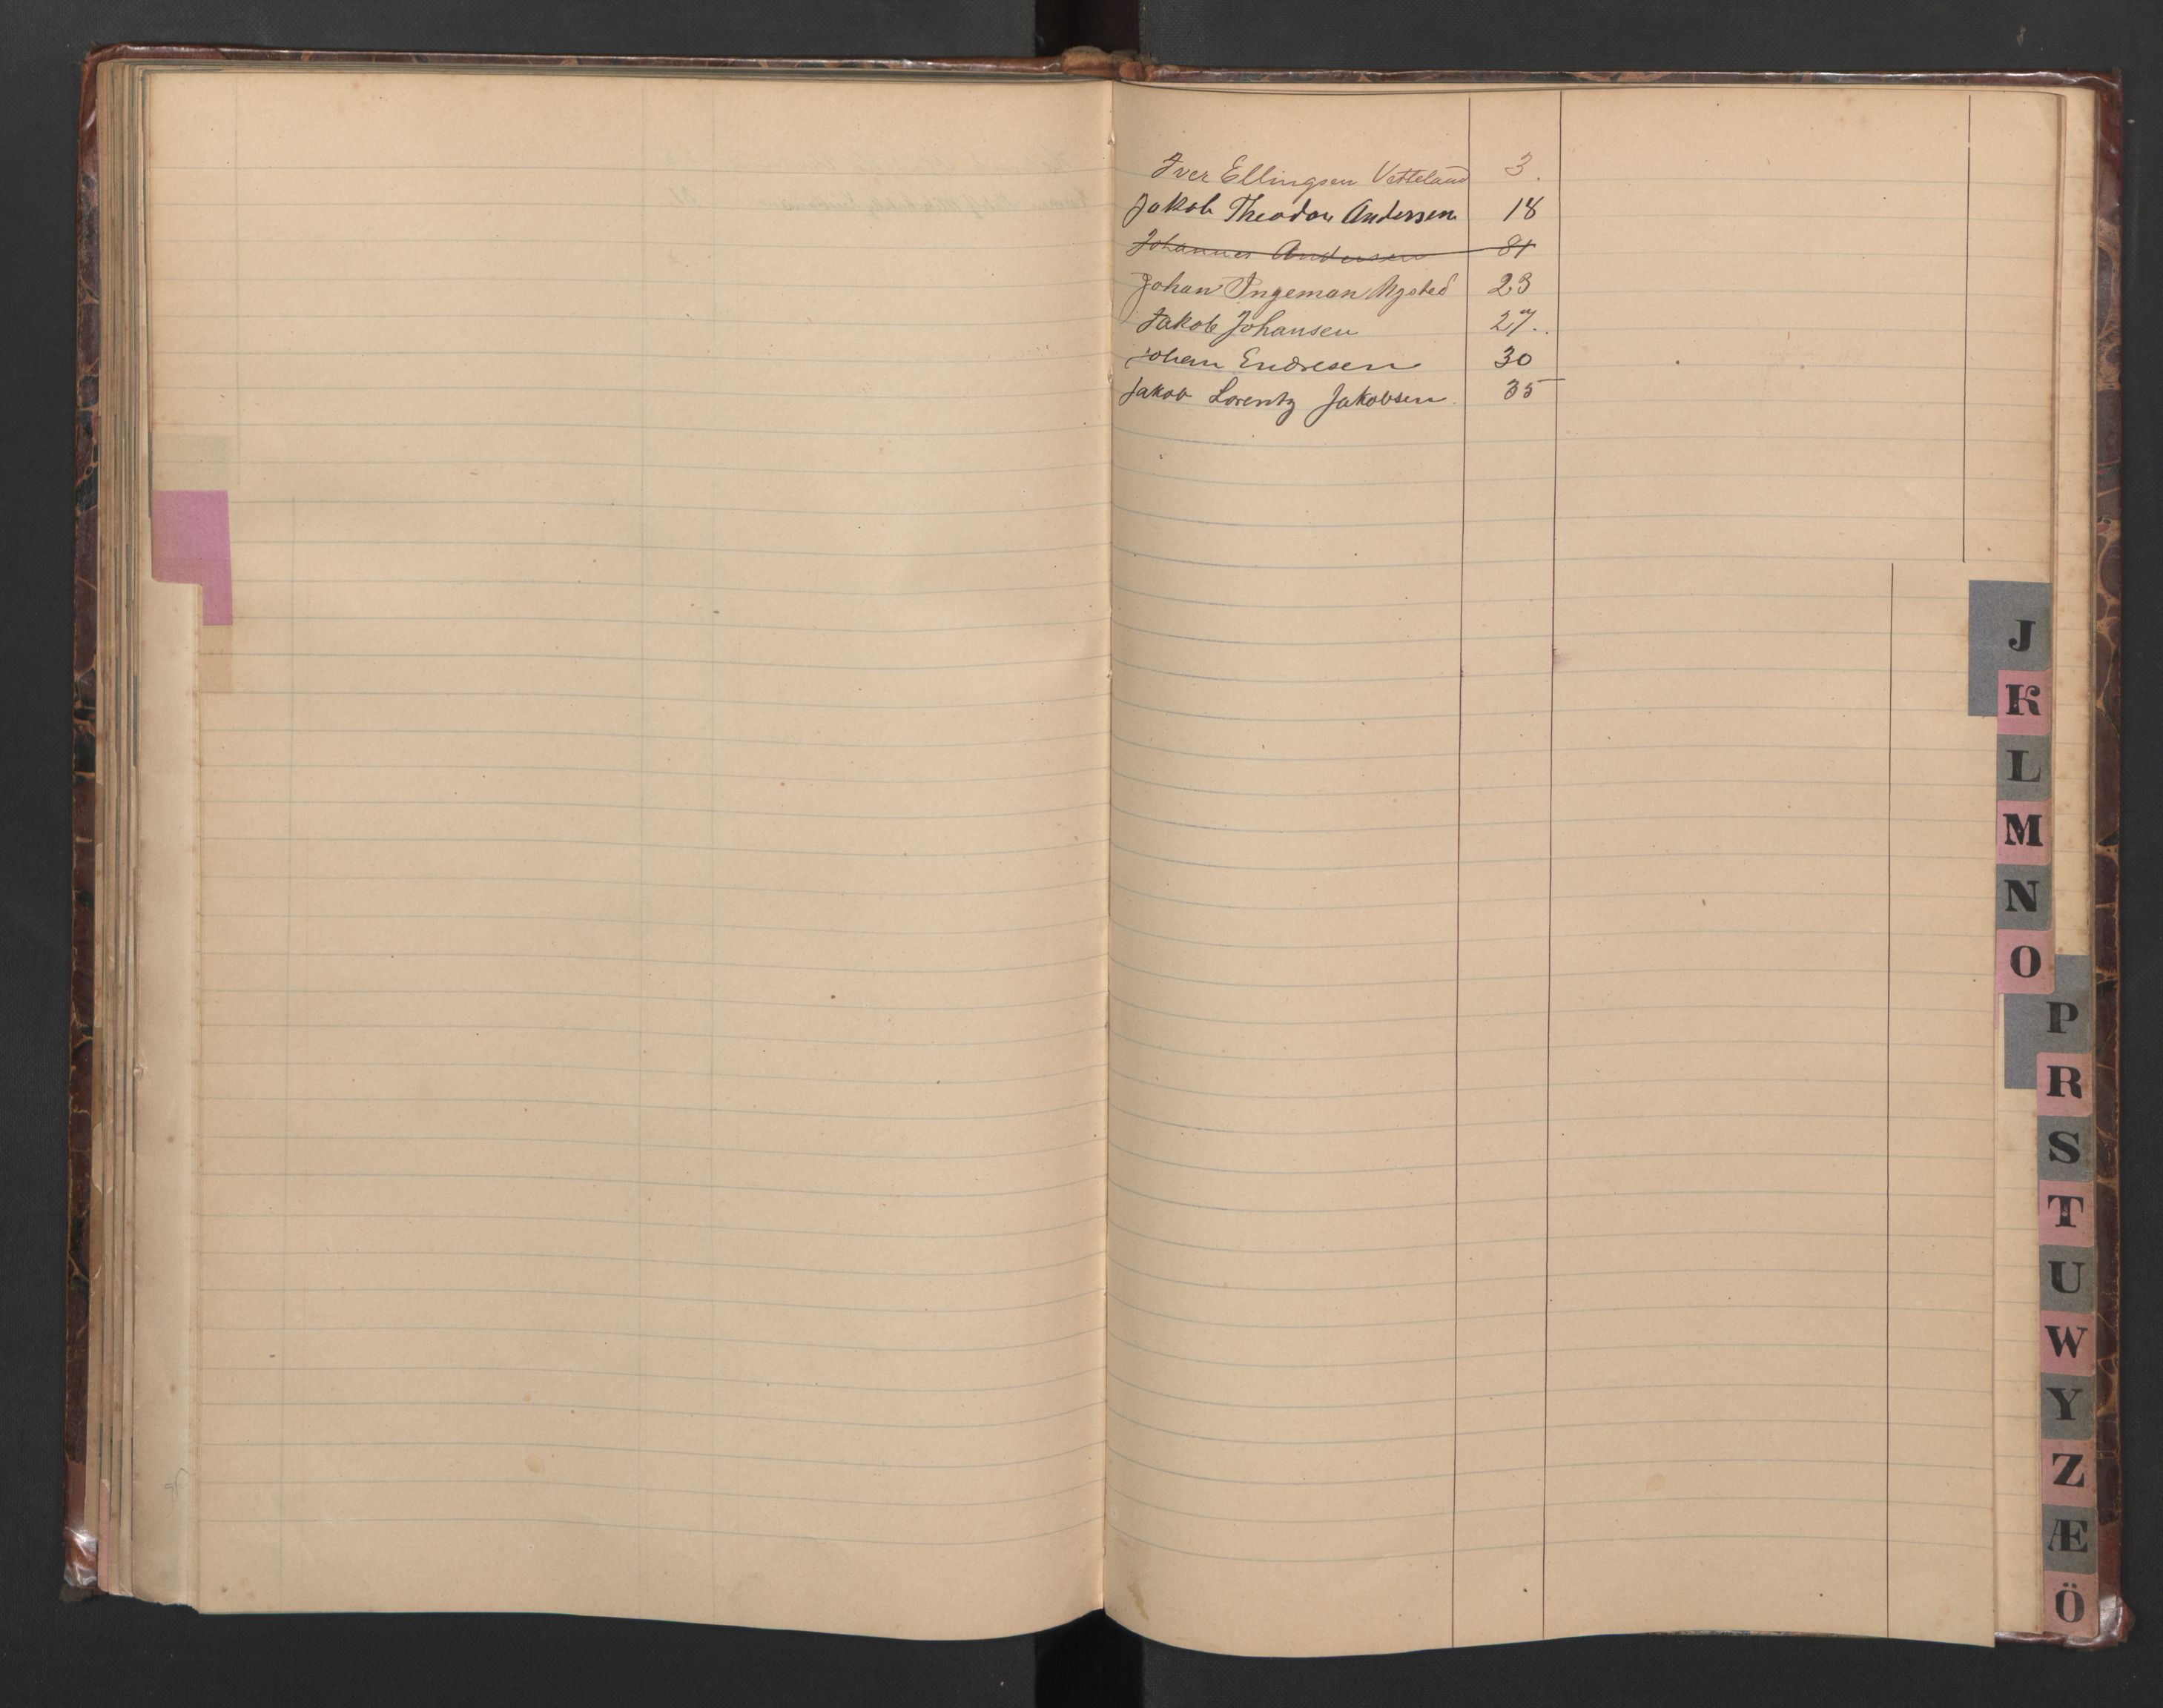 Iver Ellingsen Vetteland 3.
Jakob Theodor Andersen 18
Johannes Andersen 81
Johan Ingeman 23
Jakob Johansen 27.
Johan Endresen 30
Jakob Lorentz Jakobsen 35
J
K
L
M
N
O
P
R
S
T
U
W
Y
Z
Æ
Ö